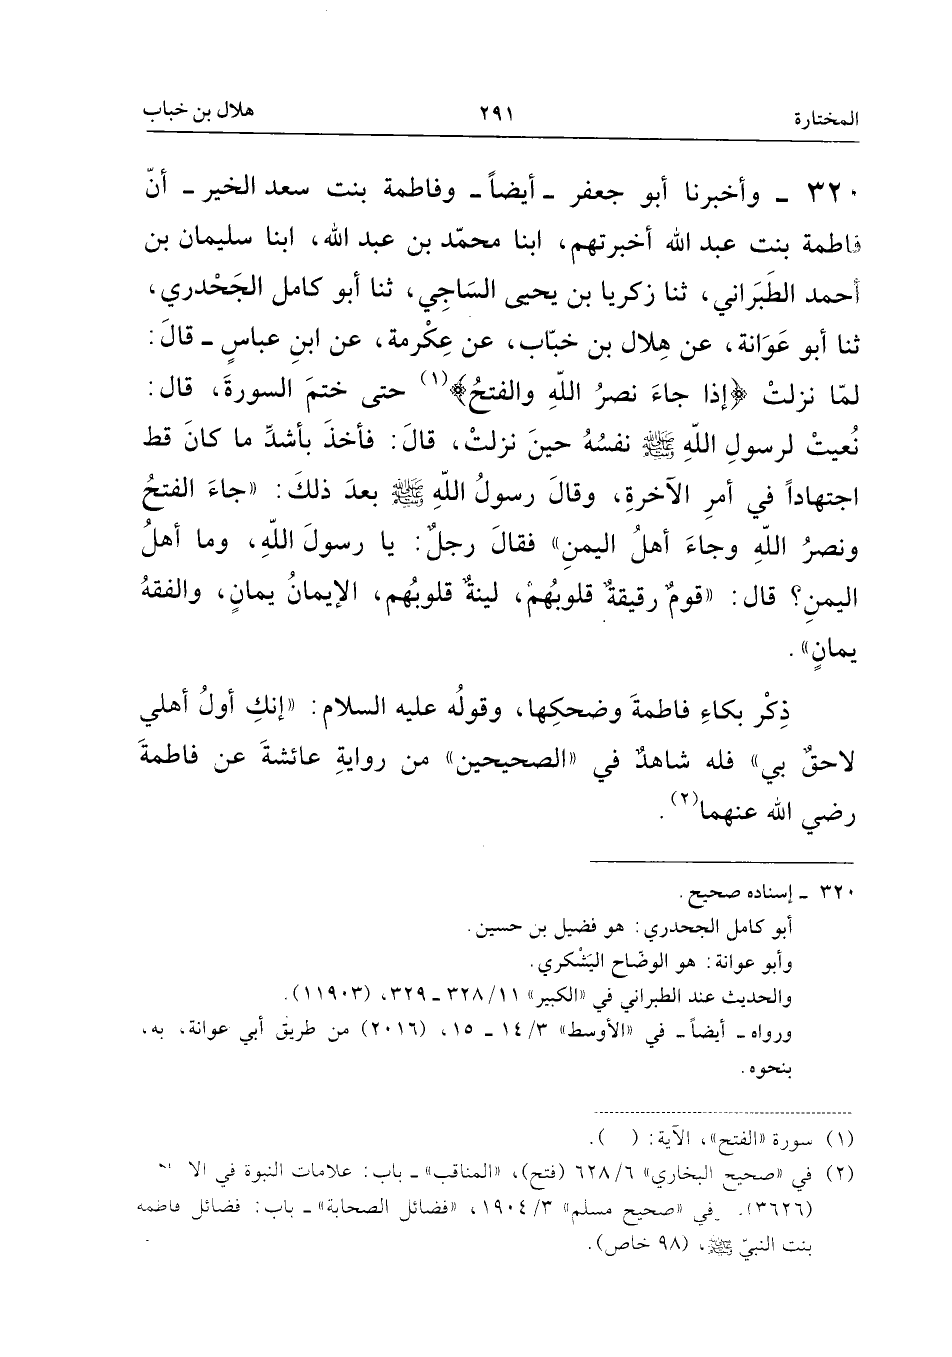 المختارة ٢٩١ هلال بن خباب
٣٢٠ ـ وأخبرنا أبو جعفر ـ أيضاً ـ وفاطمة بنت سعد الخير ـ أنّ
فاطمة بنت عبد الله أخبرتهم، ابنا محمّد بن عبد الله، ابنا سليمان بن
أحمد الطَبَراني، ثنا زكريا بن يحيى السَاجِي، ثنا أبو كامل الجَحْدري،
ثنا أبو عَوَانة، عن هِلال بن خبّاب، عن عِكْرمة، عن ابنِ عباسٍ ـ قالَ:
لمّا نزلتْ ﴿إذا جاءَ نصرُ اللّهِ والفتحُ﴾(١) حتى ختمَ السورةَ، قال:
نُعيتْ لرسولِ اللّهِ ﷺ نفسُهُ حينَ نزلتْ، قالَ: فأخذَ بأشدِّ ما كانَ قط
اجتهاداً في أمرِ الآخرةِ، وقالَ رسولُ اللّهِ ﷺ بعدَ ذلكَ: «جاءَ الفتحُ
ونصرُ اللّهِ وجاءَ أهلُ اليمنِ» فقالَ رجلٌ: يا رسولَ اللّهِ، وما أهلُ
اليمنِ؟ قال: «قومٌ رقيقةٌ قلوبُهُمْ، لينةٌ قلوبُهُم، الإيمانُ يمانٍ، والفقهُ
يمانٍ».
ذِكْر بكاءِ فاطمةَ وضحكِها، وقولُه عليه السلام: «إنكِ أولُ أهلي
لاحقٌ بي» فله شاهدٌ في «الصحيحين» من روايةِ عائشةَ عن فاطمةَ
رضي الله عنهما(٢).
٣٢٠ ـ إسناده صحيح.
أبو كامل الجحدري: هو فضيل بن حسين.
وأبو عوانة: هو الوضّاح اليَشْكري.
والحديث عند الطبراني في «الكبير» ٣٢٨/١١ ـ ٣٢٩، (١١٩٠٣).
ورواه ـ أيضاً ـ في «الأوسط» ١٤/٣ ـ ١٥، (٢٠١٦) من طريق أبي عوانة، به،
بنحوه.
(١) سورة «الفتح»، الآية: ( ).
(٢) في «صحيح البخاري» ٦٢٨/٦ (فتح)، «المناقب» ـ باب: علامات النبوة في
(٣٦٢٦). في «صحيح مسلم» ١٩٠٤/٣، «فضائل الصحابة» ـ باب: فضائل فاطمة
بنت النبيّ ﷺ، (٩٨ خاص).